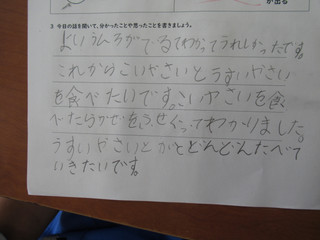 が出る
3 今日の話を聞いて、分かったことや思ったことを書きましょう。
よいうんちがでるてわかってうれしかったです。
これからこいやさいとうすいやさい
を食べたいです。こいやさいを食
べたらかぜをふせぐってわかりました。
うすいやさいとかをどんどんたべて
いきたいです。